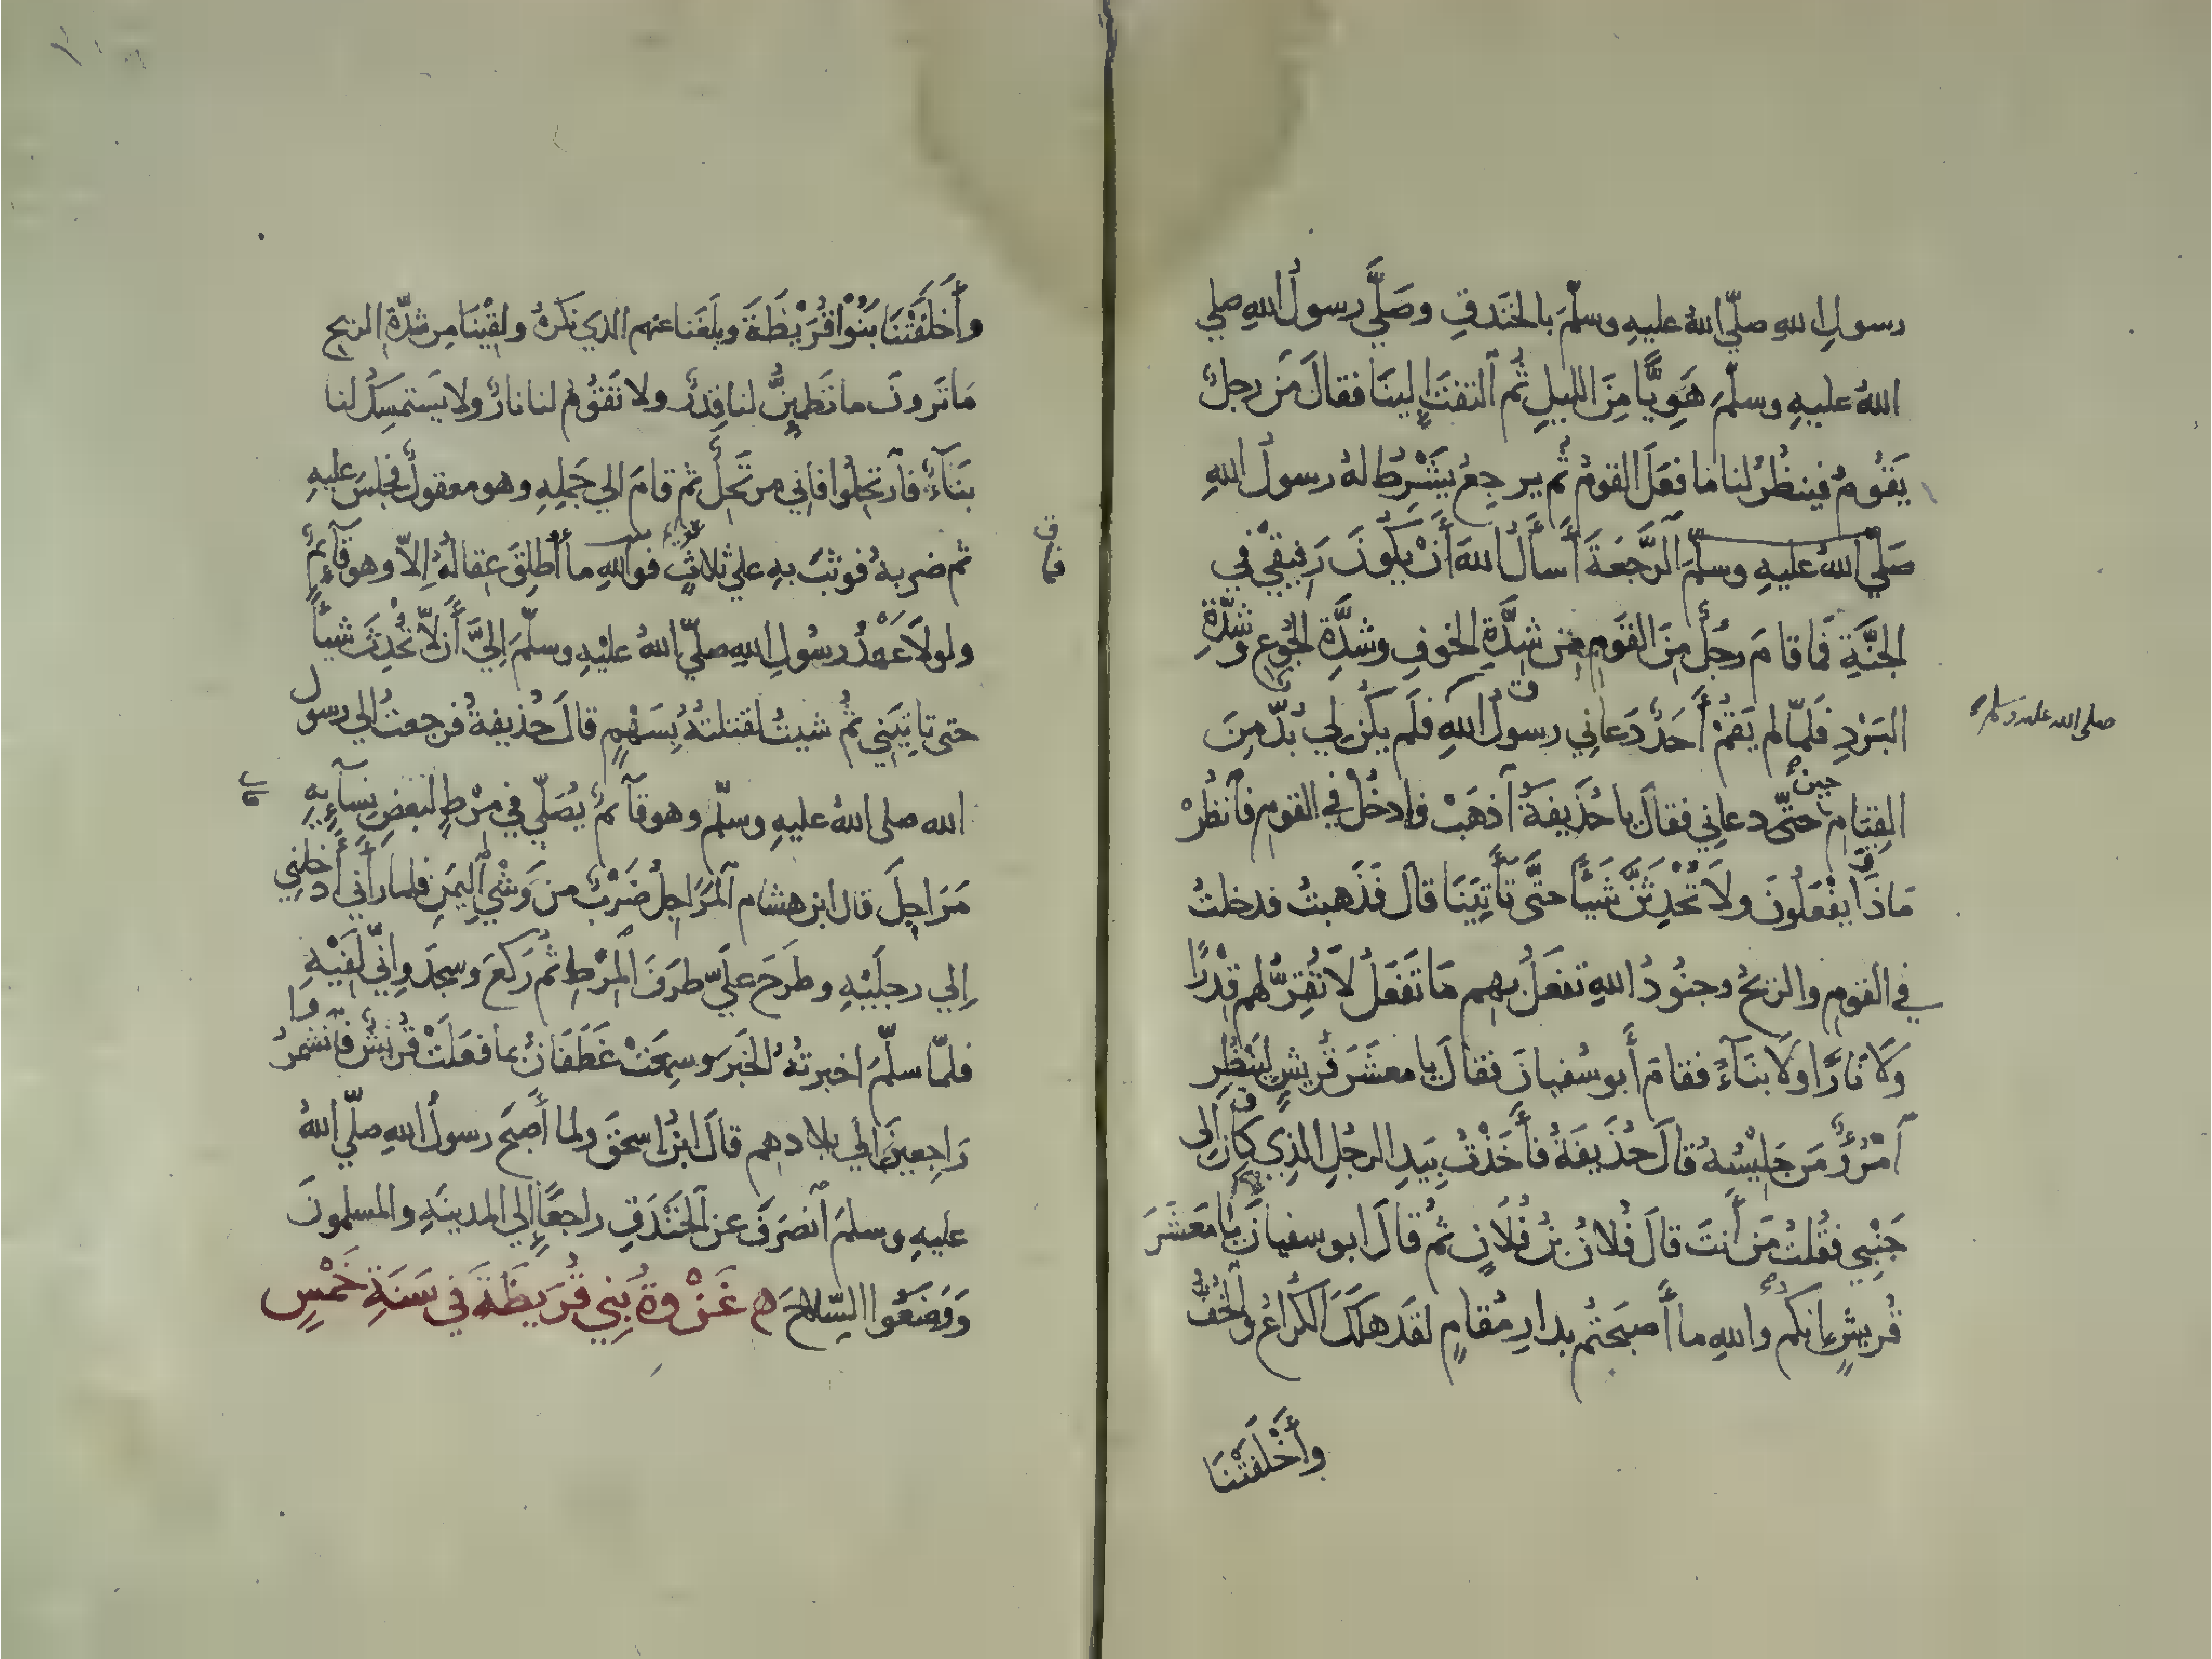 رسولِ اللهِ صلّي اللهُ عليهِ وسلّمَ بالخَندقِ وصَلَّي رسولُ اللهِ صلي
اللهُ عليهِ وسلّمَ هَوِيًّا مِنَ الليلِ ثُمَّ ٱلتفتَ إلينَا فقالَ مَن رجلٌ
يَقُومُ فينظُرُ لنا ما فعَلَ القومُ ثُم يرجِعُ يَشْرِطُ لهُ رسولُ اللهِ
صَلّي اللهُ عليهِ وسلّمَ ٱلرَّجعَةَ أَسأَلُ اللهَ أَنْ يكُونَ رَفيقِي في
الجنَّةِ فمَا قامَ رجُلٌ مِنَ القومِ من شدَّةِ الخوفِ وشدَّةِ الجُوعِ وشدَّةِ
البَرْدِ فَلمّا لم يَقُمْ أَحَدٌ دَعاني رسولُ اللهِ فلَم يكُن لي بُدٌّ مِنَ
صلى الله عليه وسلم
القِيَامِ حينَ دعاني فقالَ يا حُذَيفةُ ٱذهَبْ فٱدخُلْ في القومِ فٱنظُرْ
مَاذَا يفْعَلُونَ ولَا تُحْدِثَنَّ شَيئًا حتَّى تَأْتِيَنَا قالَ فَذَهبتُ فدخلتُ
في القومِ والريحُ وجنُودُ اللهِ تفعَلُ بهِم مَا تَفعَلُ لَا تُقِرُّ لهم قِدْرًا
وَلَا نَارًا ولَا بنَآءً فقامَ أَبو سُفيانَ فقالَ يا معشَرَ قُريشٍ ليَنظُرِ
ٱمْرُؤٌ مَن جَليسُهُ قالَ حُذَيفَةُ فأَخَذْتُ بِيَدِ الرجُلِ الذِي كانَ إلى
جَنْبِي فقُلتُ مَن أَنتَ قالَ فُلانُ بنُ فُلَانٍ ثُمَّ قالَ ابو سفيانَ يَا مَعشَرَ
قُريشٍ إنكم واللهِ ما أَصبَحتُم بدارِ مُقامٍ لقَد هَلَكَ الكُراعُ والخُفُّ
وأَخْلَفَتْنَا
وأَخلَفَتْنَا بَنُوا قُرَيْظَةَ وبلَغَنا عنهم الذي نَكرَهُ ولقِيْنَا مِن شدّةِ الريحِ
مَا تَرونَ ما تَطمئِنُّ لنا قِدرٌ ولا تَقُومُ لنا نارٌ ولا يَستمسِكُ لنا
بنَآءٌ فٱرتحِلُوا فاني مرتَحِلٌ ثم قامَ الي جَملِهِ وهو معقولٌ فجلسَ عليهِ
ثم ضربهُ فوثبَ بهِ علي ثلاثٍ فوٱللهِ ما أُطلِقَ عِقالُهُ إلّا وهو قآئمٌ
ولولَا عَهْدُ رسُولِ اللهِ صلّي اللهُ عليْهِ وسلّمَ إليَّ أَن لَا تُحْدِثَ شيئًا
حتى تاتِيَني ثُم شيتُ لقتلتهُ بِسَهْمٍ قالَ حُذيفةُ فرجعتُ الي رسول
الله صلى اللهُ عليهِ وسلّم وهو قآئمٌ يُصَلّي في مِرْطٍ لبَعضِ نِسآئِهِ
مَرَاجِلَ قال ابن هشام ٱلمَرَاجِلُ ضَرْبٌ من وَشْيِ ٱليمَنِ فلما رأَٰني أَدخلني
إلي رجلَيْهِ وطَرحَ عليَّ طرَفَ المِرْطِ ثُم رَكعَ وسجدَ وإنّي لَفِيْهِ
فلمّا سلّمَ اخبرتهُ الخبَرَ وسمعَتْ غَطَفَانُ بما فعَلَتْ قُريْشٌ فٱنشَمرُوا
رَاجِعينَ الي بلادهم قالَ ابنُ اسحٰقَ ولما أَصبَحَ رسولُ اللهِ صلّي اللهُ
عليهِ وسلمَ ٱنصَرَفَ عن ٱلخَنْدَقِ راجعًا إلي المدينَةِ والمسلمونَ
وَوَضَعُوا السِّلاحَ ه غَزْوةُ بَنِي قُرَيظَةَ في سَنَةِ خَمْسٍ